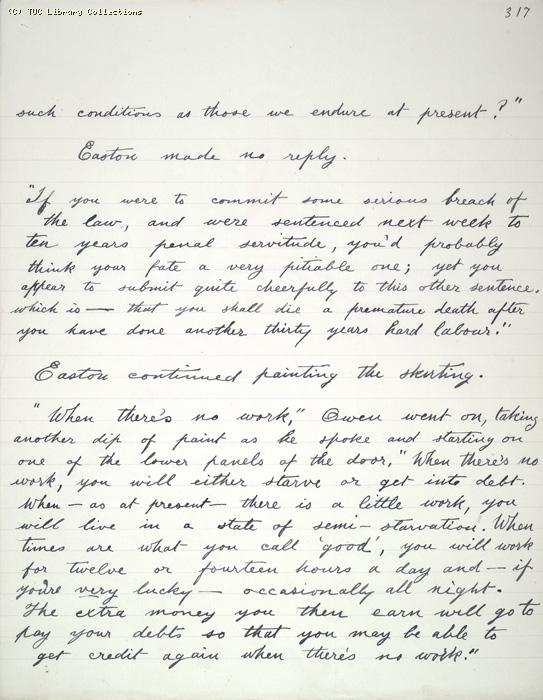 (C) TUC Library Collections
317
such conditions as those we endure at present?"
Easton made no reply.
"If you were to commit some serious breach of
the law, and were sentenced next week to
ten years penal servitude, you'd probably
think your fate a very pitiable one; yet you
appear to submit quite cheerfully to this other sentence,
which is — that you shall die a premature death after
you have done another thirty years hard labour."
Easton continued painting the skirting.
"When there's no work," Owen went on, taking
another dip of paint as he spoke and starting on
one of the lower panels of the door, "When there's no
work, you will either starve or get into debt.
When — as at present — there is a little work, you
will live in a state of semi-starvation. When
times are what you call 'good', you will work
for twelve or fourteen hours a day and — if
you're very lucky — occasionally all night.
The extra money you then earn will go to
pay your debts so that you may be able to
get credit again when there's no work."